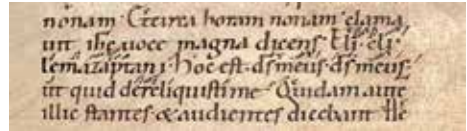 nonam · Et circa horam nonam · clama
uit ihc uoce magna dicens · Eli · eli ·
lemazaptani · hoc est · ds meus · ds meus ·
ut quid dereliquisti me · Quidam aute
illic stantes & audientes dicebant